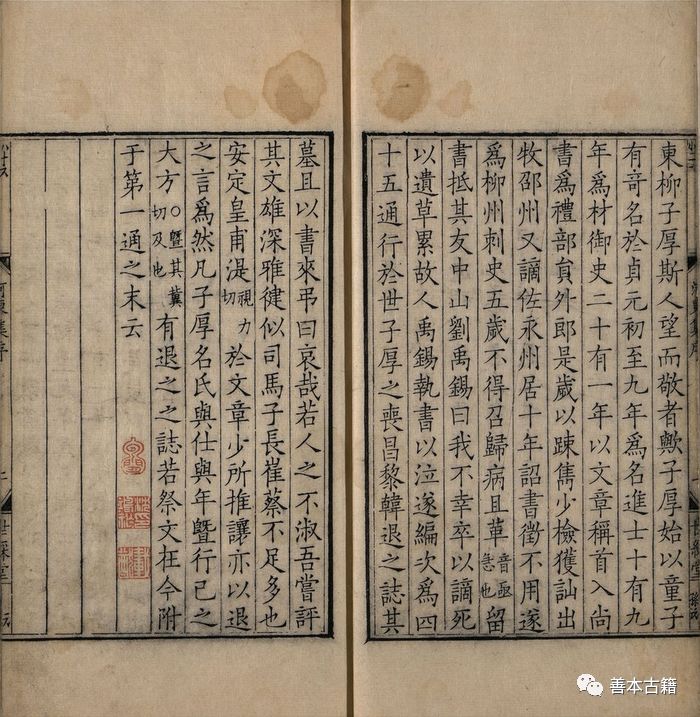 東柳子厚斯人望而敬者歟子厚始以童子
有奇名於貞元初至九年為名進士十有九
年為材御史二十有一年以文章稱首入尚
書為禮部員外郎是歲以踈雋少檢獲訕出
牧邵州又謫佐永州居十年詔書徵不用遂
為柳州刺史五歲不得召歸病且革音亟急也留
書抵其友中山劉禹錫曰我不幸卒以謫死
以遺草累故人禹錫執書以泣遂編次為四
十五通行於世子厚之喪昌黎韓退之誌其
墓且以書來弔曰哀哉若人之不淑吾嘗評
其文雄深雅健似司馬子長崔蔡不足多也
安定皇甫湜視力切於文章少所推讓亦以退
之言為然凡子厚名氏與仕與年暨行已之
大方○暨其冀切及也有退之之誌若祭文在今附
于第一通之末云
世綵堂
善本古籍